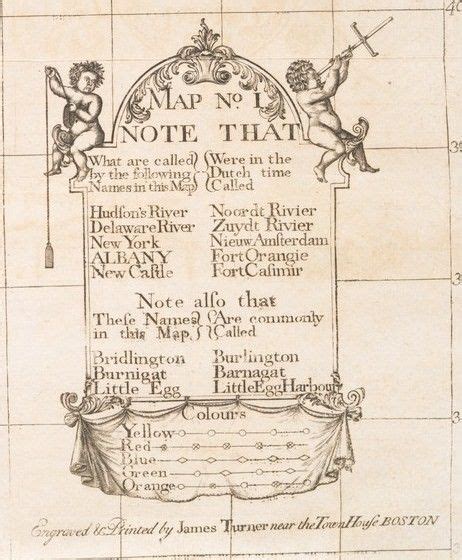 MAP No I.
NOTE THAT
What are called Were in the
by the following Dutch time
Names in this Map Called
Hudſon's River Noordt Rivier
Delaware River Zuydt Rivier
New York Nieuw Amſterdam
ALBANY Fort Orangie
New Caſtle Fort Caſimir
Note alſo that
Theſe Names Are commonly
in this Map Called
Bridlington Burlington
Burnigat Barnagat
Little Egg Little Egg Harbour
Colours
Yellow
Red
Blue
Green
Orange
Engraved & Printed by James Turner near the Town Houſe BOSTON